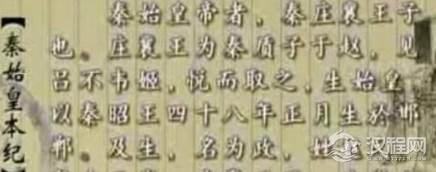 【秦始皇本纪
秦始皇帝者，秦庄襄王子
也。庄襄王为秦质子于赵，见
吕不韦姬，悦而取之，生始皇
以秦昭王四十八年正月生於邯
郸。及生，名为政，姓
汉程网